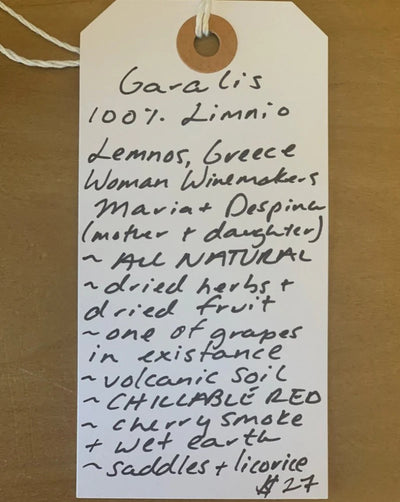 Garalis
100% Limnio
Lemnos, Greece
Woman Winemakers
Maria + Despina
(mother + daughter)
~ ALL NATURAL
~ dried herbs +
dried fruit
~ one of grapes
in existance
~ volcanic soil
~ CHILLABLE RED
~ cherry smoke
+ wet earth
~ saddles + licorice
$27